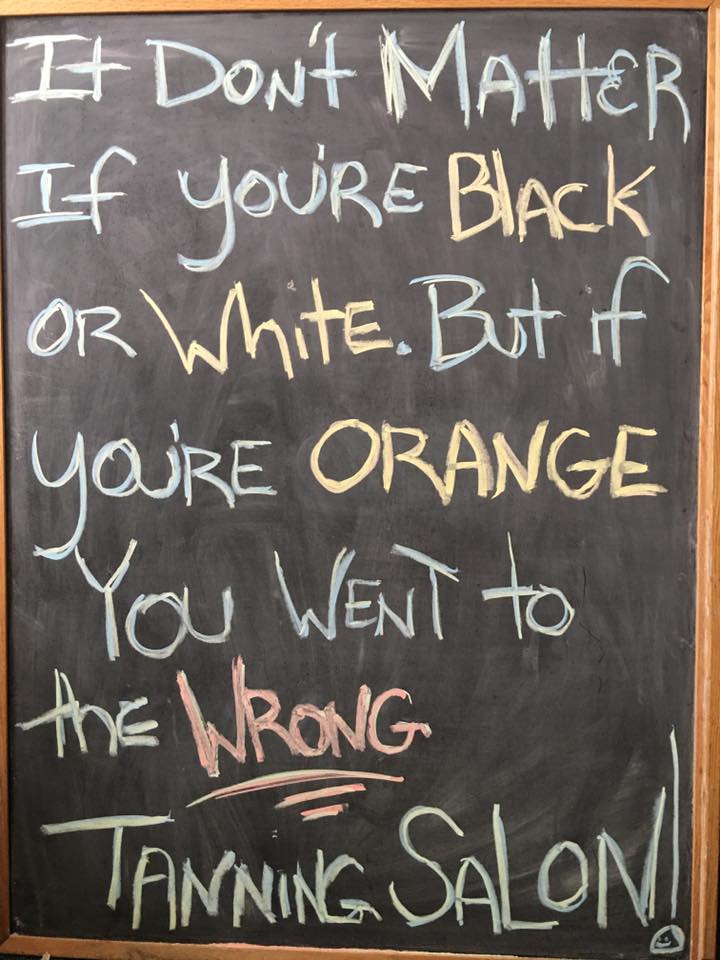 It Don't MattER
If you'RE BlAck
OR WhitE. But if
you'RE ORANGE
You WENT to
thE WRONG
TANNING SALON!